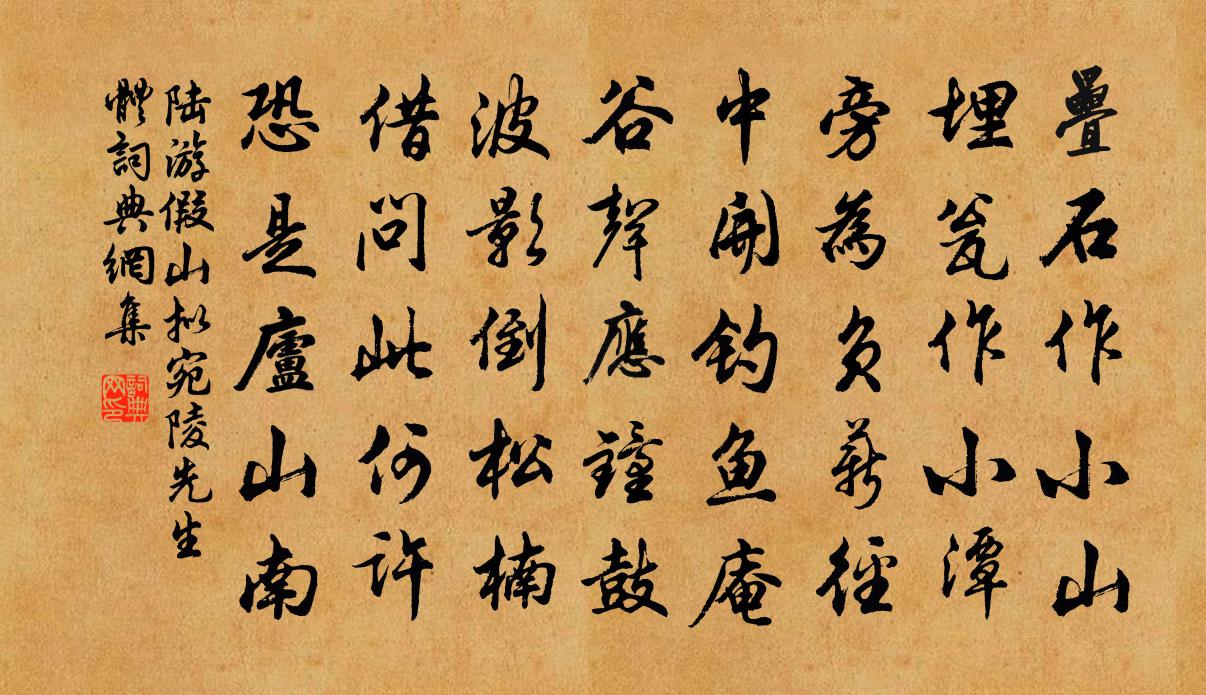 疊石作小山
埋瓮作小潭
旁為負薪徑
中開釣魚庵
谷聲應鐘鼓
波影倒松楠
借問此何許
恐是廬山南
陆游假山拟宛陵先生
體詞典網集
詞典網印